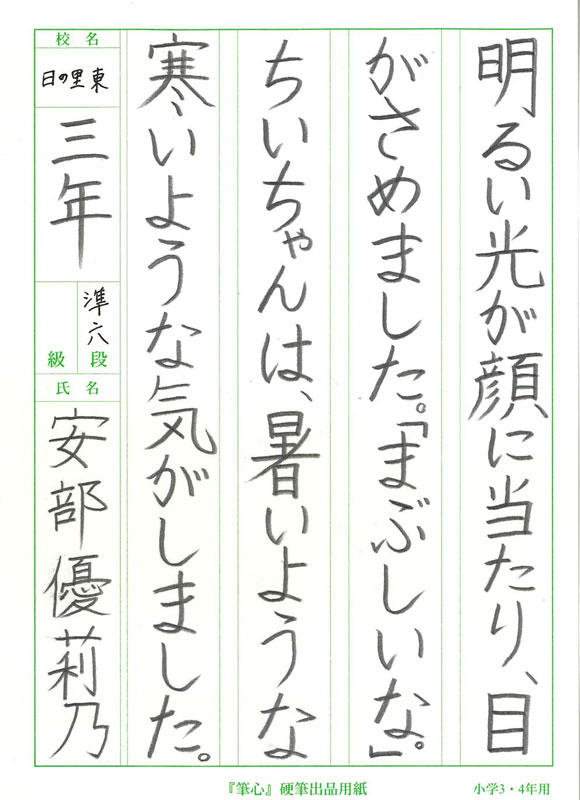 明るい光が顔に当たり、目
がさめました。「まぶしいな。」
ちいちゃんは、暑いような
寒いような気がしました。
校名
日の里東
三年
準六
段
級
氏名
安部優莉乃
『筆心』硬筆出品用紙
小学3・4年用